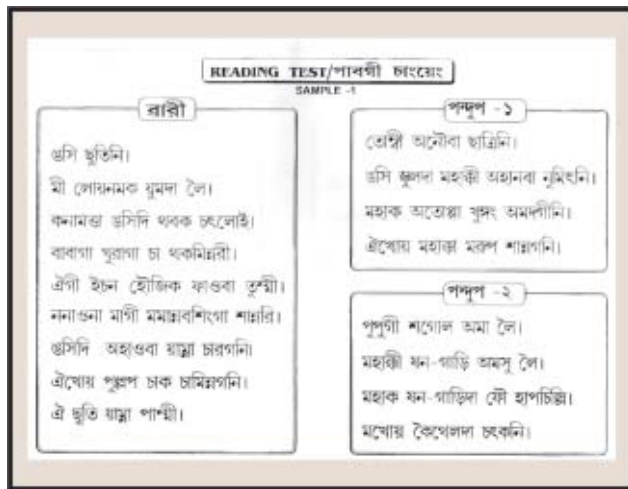 READING TEST/পাবগী চাংয়েং
SAMPLE -1
ৱারী
ঙসি ছুতিনি।
মী লোয়নমক য়ুমদা লৈ।
কনামত্তা ঙসিদি থবক চৎলোই।
বাবাগা খুরাগা চা থকমিন্নরী।
ঐগী ইচন হৌজিক ফাওবা তুম্মী।
ননাওনা মাগী মমান্নবশিংগা শান্নরি।
ঙসিদি অহাওবা য়াম্না চারগনি।
ঐখোয় পুন্নপ চাক চামিন্নগনি।
ঐ ছুতি য়াম্না পাম্মী।
পন্দুপ -১
তোম্বী অনৌবা ছাত্রিনি।
ঙসি স্কুলদা মহাক্কী অহানবা নুমিৎনি।
মহাক অতোপ্পা খুঙ্গং অমদগীনি।
ঐখোয় মহাক্কা মরূপ শান্নগনি।
পন্দুপ -২
পুপুগী শগোল অমা লৈ।
মহাক্কী যন-গাড়ি অমসু লৈ।
মহাক যন-গাড়িদা ফৌ হাপচিল্লি।
মখোয় কৈথেলদা চৎকনি।